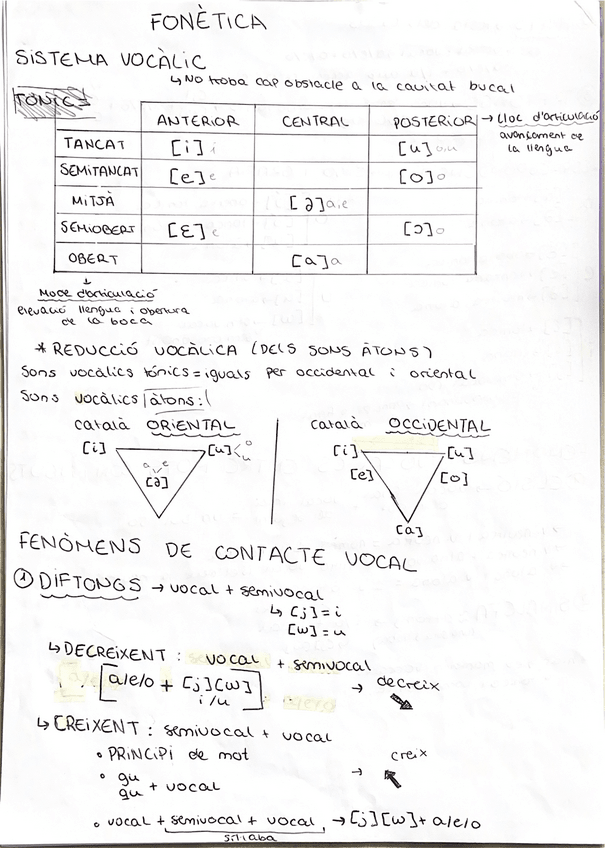 FONÈTICA
SISTEMA VOCÀLIC
↳ NO troba cap obstacle a la cavitat bucal
TÒNICS
ANTERIOR CENTRAL POSTERIOR → Lloc d'articulació
avançament de
la llengua
TANCAT [i] i [u] o,u
SEMITANCAT [e] e [o] o
MITJÀ [ə] a,e
SEMIOBERT [ɛ] e [ɔ] o
OBERT [a] a
↓
Mode d'articulació
elevació llengua i obertura
de la boca
* REDUCCIÓ VOCÀLICA (DELS SONS ÀTONS)
Sons vocàlics tònics = iguals per occidental i oriental
Sons vocàlics àtons:
català ORIENTAL català OCCIDENTAL
[i] [u] < o u [i] [u]
a, e [ə] [e] [o]
[a]
FENÒMENS DE CONTACTE VOCAL
① DIFTONGS → vocal + semivocal
↳ [j] = i
[w] = u
↳ DECREIXENT : vocal + semivocal
[a/e/o + [j][w]] → decreix
i/u
↳ CREIXENT : semivocal + vocal
• PRINCIPI de mot creix
• qu →
gu + vocal
• vocal + semivocal + vocal → [j][w] + a/e/o
síl·laba